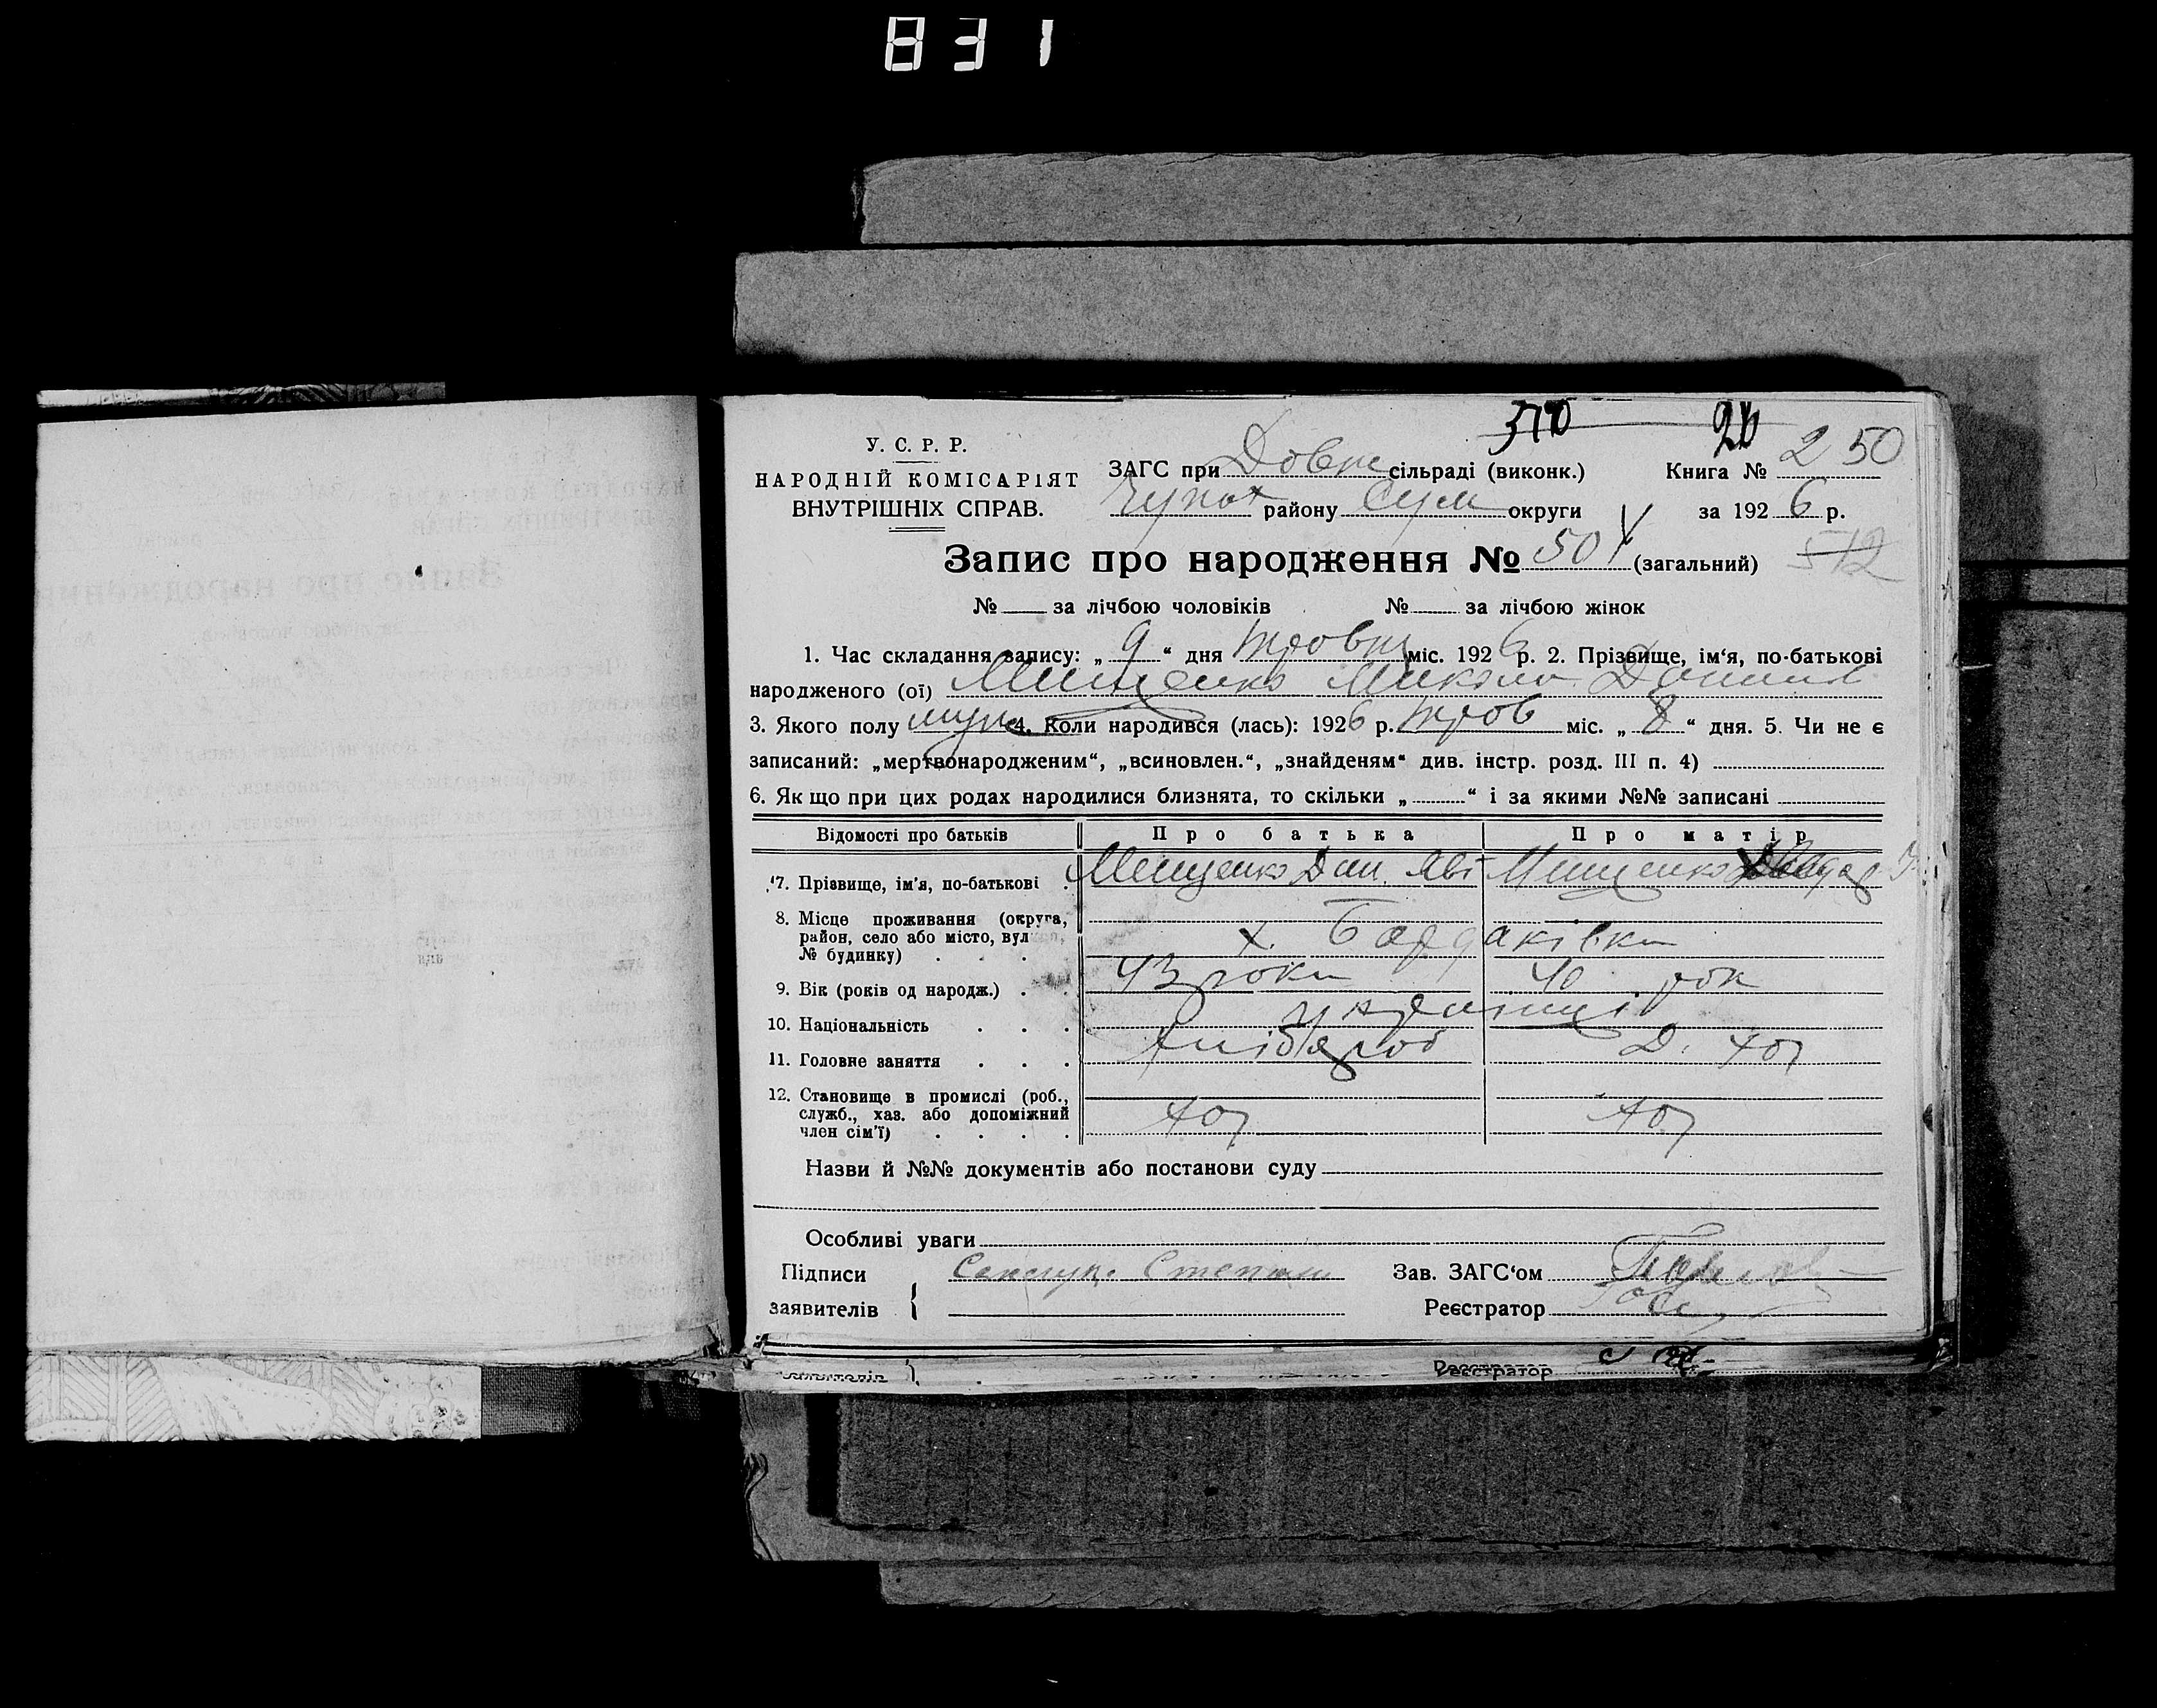 831
370 20
У. С. Р. Р.
НАРОДНІЙ КОМІСАРІЯТ
ВНУТРІШНІХ СПРАВ.
ЗАГС при Довж сільраді (виконк.) Книга № 250
району Сум округи за 1926 р.
Запис про народження № 501 (загальний) 512
№ за лічбою чоловіків № за лічбою жінок
1. Час складання запису: „ 9 “ дня травня міс. 1926 р. 2. Прізвище, ім‘я, по-батькові
народженого (ої) Мищенко Микола Данил
3. Якого полу муж 4. Коли народився (лась): 1926 р. трав міс. „ 8 “ дня. 5. Чи не є
записаний: „мертвонародженим“, „всиновлен.“, „знайденям“ див. інстр. розд. III п. 4)
6. Як що при цих родах народилися близнята, то скільки „ “ і за якими №№ записані
Відомості про батьків Про батька Про матір
7. Прізвище, ім'я, по-батькові Мищенко Дан. Мищенко
8. Місце проживання (округа,
район, село або місто, вулиця,
№ будинку) х. Бардаківка
9. Вік (років од народж.) 43 роки 40 рок
10. Національність українці
11. Головне заняття хлібороб Д. хоз
12. Становище в промислі (роб.,
служб., хаз. або допоміжний
член сім'ї) хоз хоз
Назви й №№ документів або постанови суду
Особливі уваги
Підписи Степан Зав. ЗАГС‘ом
заявителів Реєстратор
заявителів Реєстратор